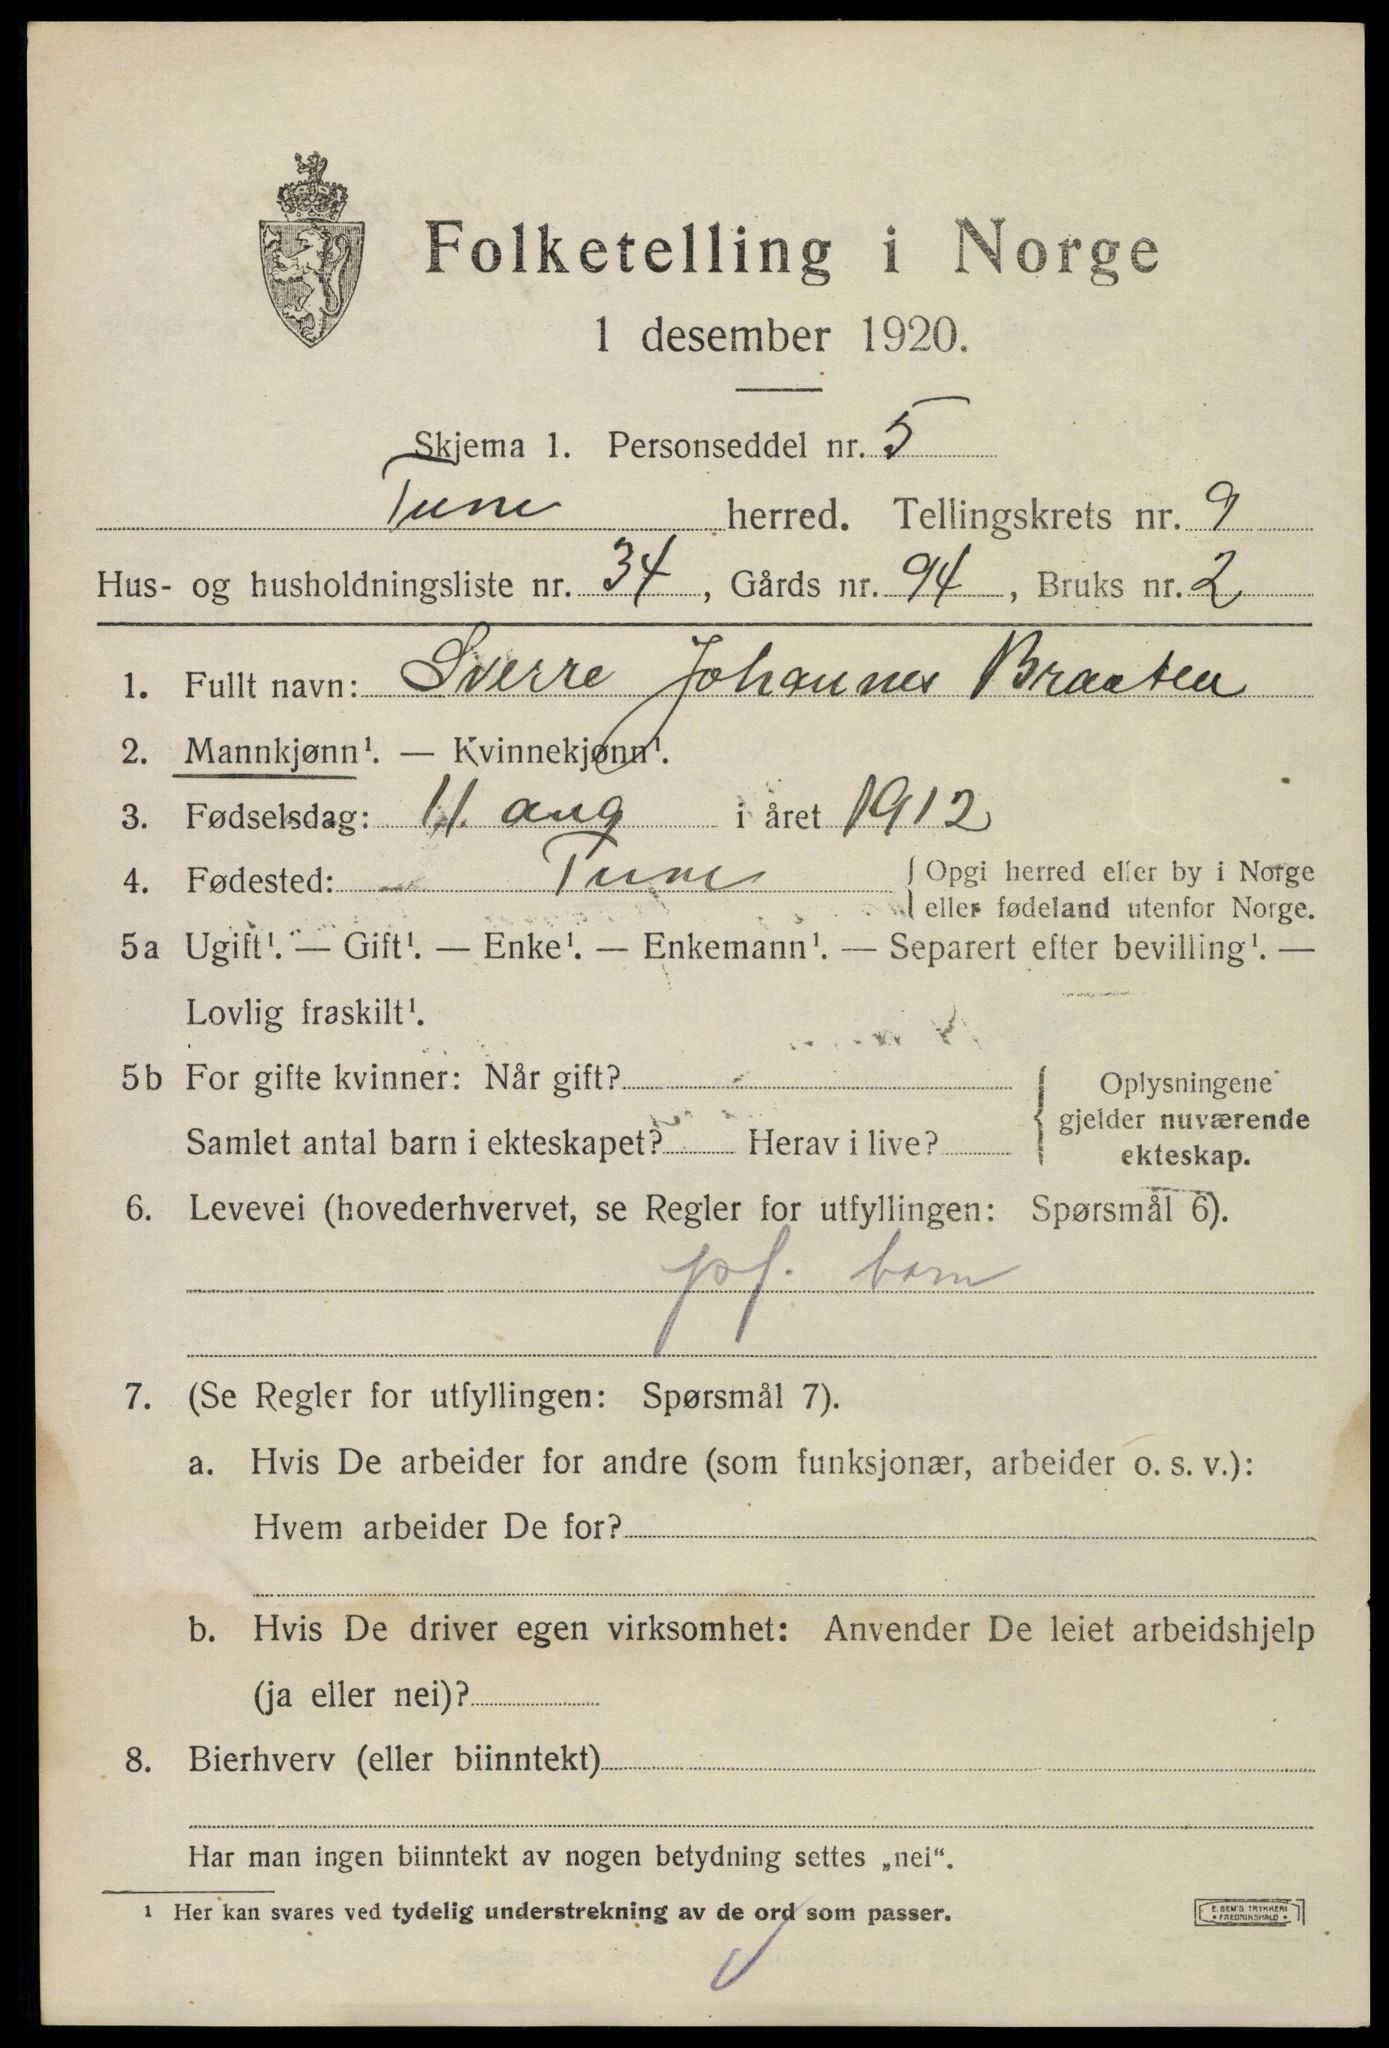 Folketelling i Norge
1 desember 1920.
Skjema 1. Personseddel nr. 5
Tune herred. Tellingskrets nr. 9
Hus- og husholdningsliste nr. 34, Gårds nr. 94, Bruks nr. 2
1. Fullt navn: Sverre Johannes Braaten
2. Mannkjønn¹. — Kvinnekjønn¹.
3. Fødselsdag: 11. aug i året 1912
4. Fødested: Tune { Opgi herred eller by i Norge
eller fødeland utenfor Norge.
5a Ugift¹. — Gift¹. — Enke¹. — Enkemann¹. — Separert efter bevilling¹. —
Lovlig fraskilt¹.
5b For gifte kvinner: Når gift?
Samlet antal barn i ekteskapet? Herav i live?
{ Oplysningene
gjelder nuværende
ekteskap.
6. Levevei (hovederhvervet, se Regler for utfyllingen: Spørsmål 6).
barn
7. (Se Regler for utfyllingen: Spørsmål 7).
a. Hvis De arbeider for andre (som funksjonær, arbeider o. s. v.):
Hvem arbeider De for?
b. Hvis De driver egen virksomhet: Anvender De leiet arbeidshjelp
(ja eller nei)?
8. Bierhverv (eller biinntekt)
Har man ingen biinntekt av nogen betydning settes „nei“.
¹ Her kan svares ved tydelig understrekning av de ord som passer.
E. SEM'S TRYKKERI
• FREDRIKSHALD •